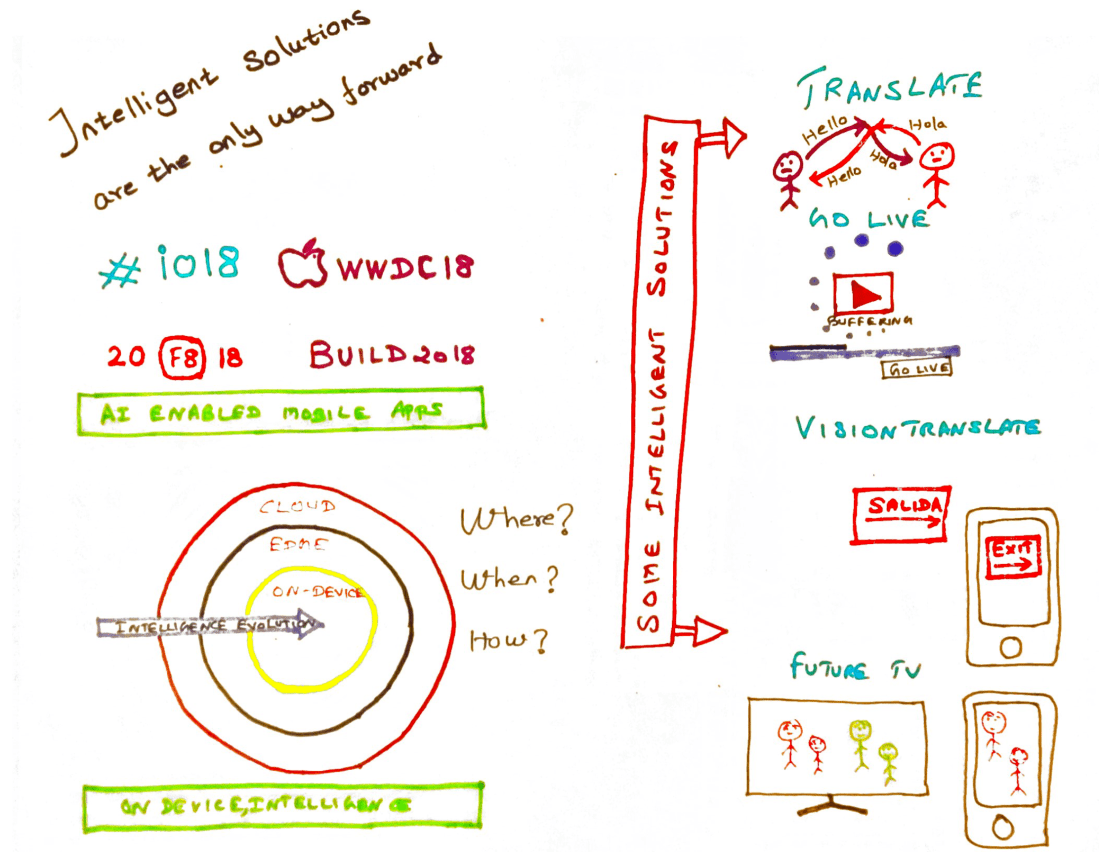 Intelligent Solutions
are the only way forward
# io18
WWDC18
20 F8 18
BUILD2018
AI ENABLED MOBILE APPS
CLOUD
EDGE
ON-DEVICE
INTELLIGENCE EVOLUTION
Where?
When?
How?
ON DEVICE, INTELLIGENCE
SOME INTELLIGENT SOLUTIONS
TRANSLATE
Hello
Hola
Hello
Hola
GO LIVE
BUFFERING
GO LIVE
VISIONTRANSLATE
SALIDA
EXIT
FUTURE TV